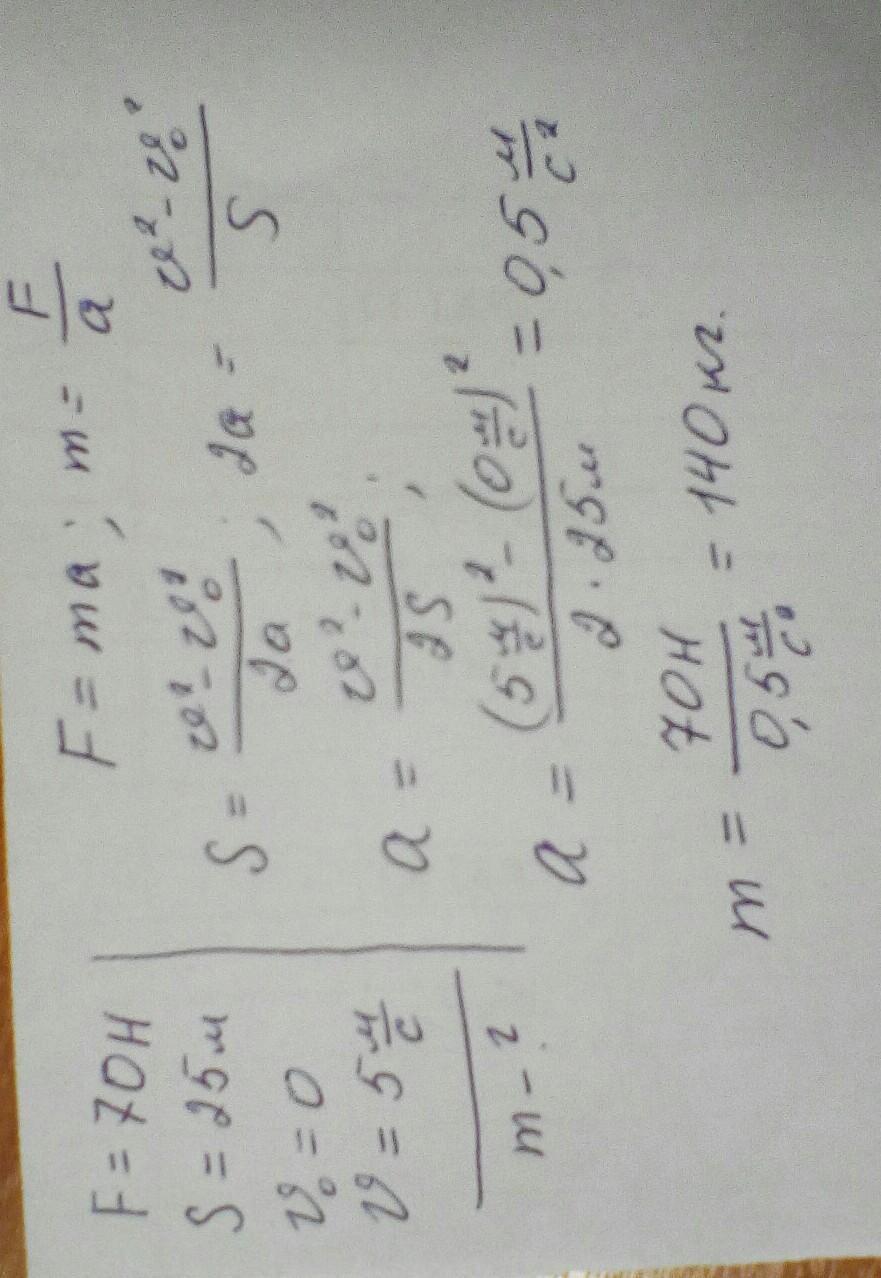 F = 70 Н
S = 25 м
v₀ = 0
v = 5 м/с
m - ?
F = ma; m = F/a
S = (v² - v₀²)/2a; 2a = (v² - v₀²)/S
a = (v² - v₀²)/2S;
a = ((5 м/с)² - (0 м/с)²)/(2 · 25 м) = 0,5 м/с²
m = 70 Н/(0,5 м/с²) = 140 кг.